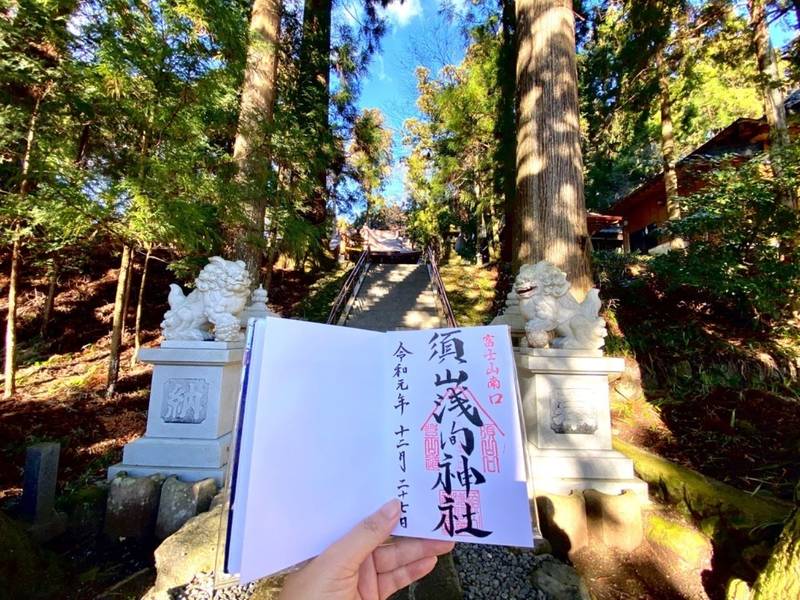 富士山南口
須山浅间神社
令和元年 十二月 二十七日
納